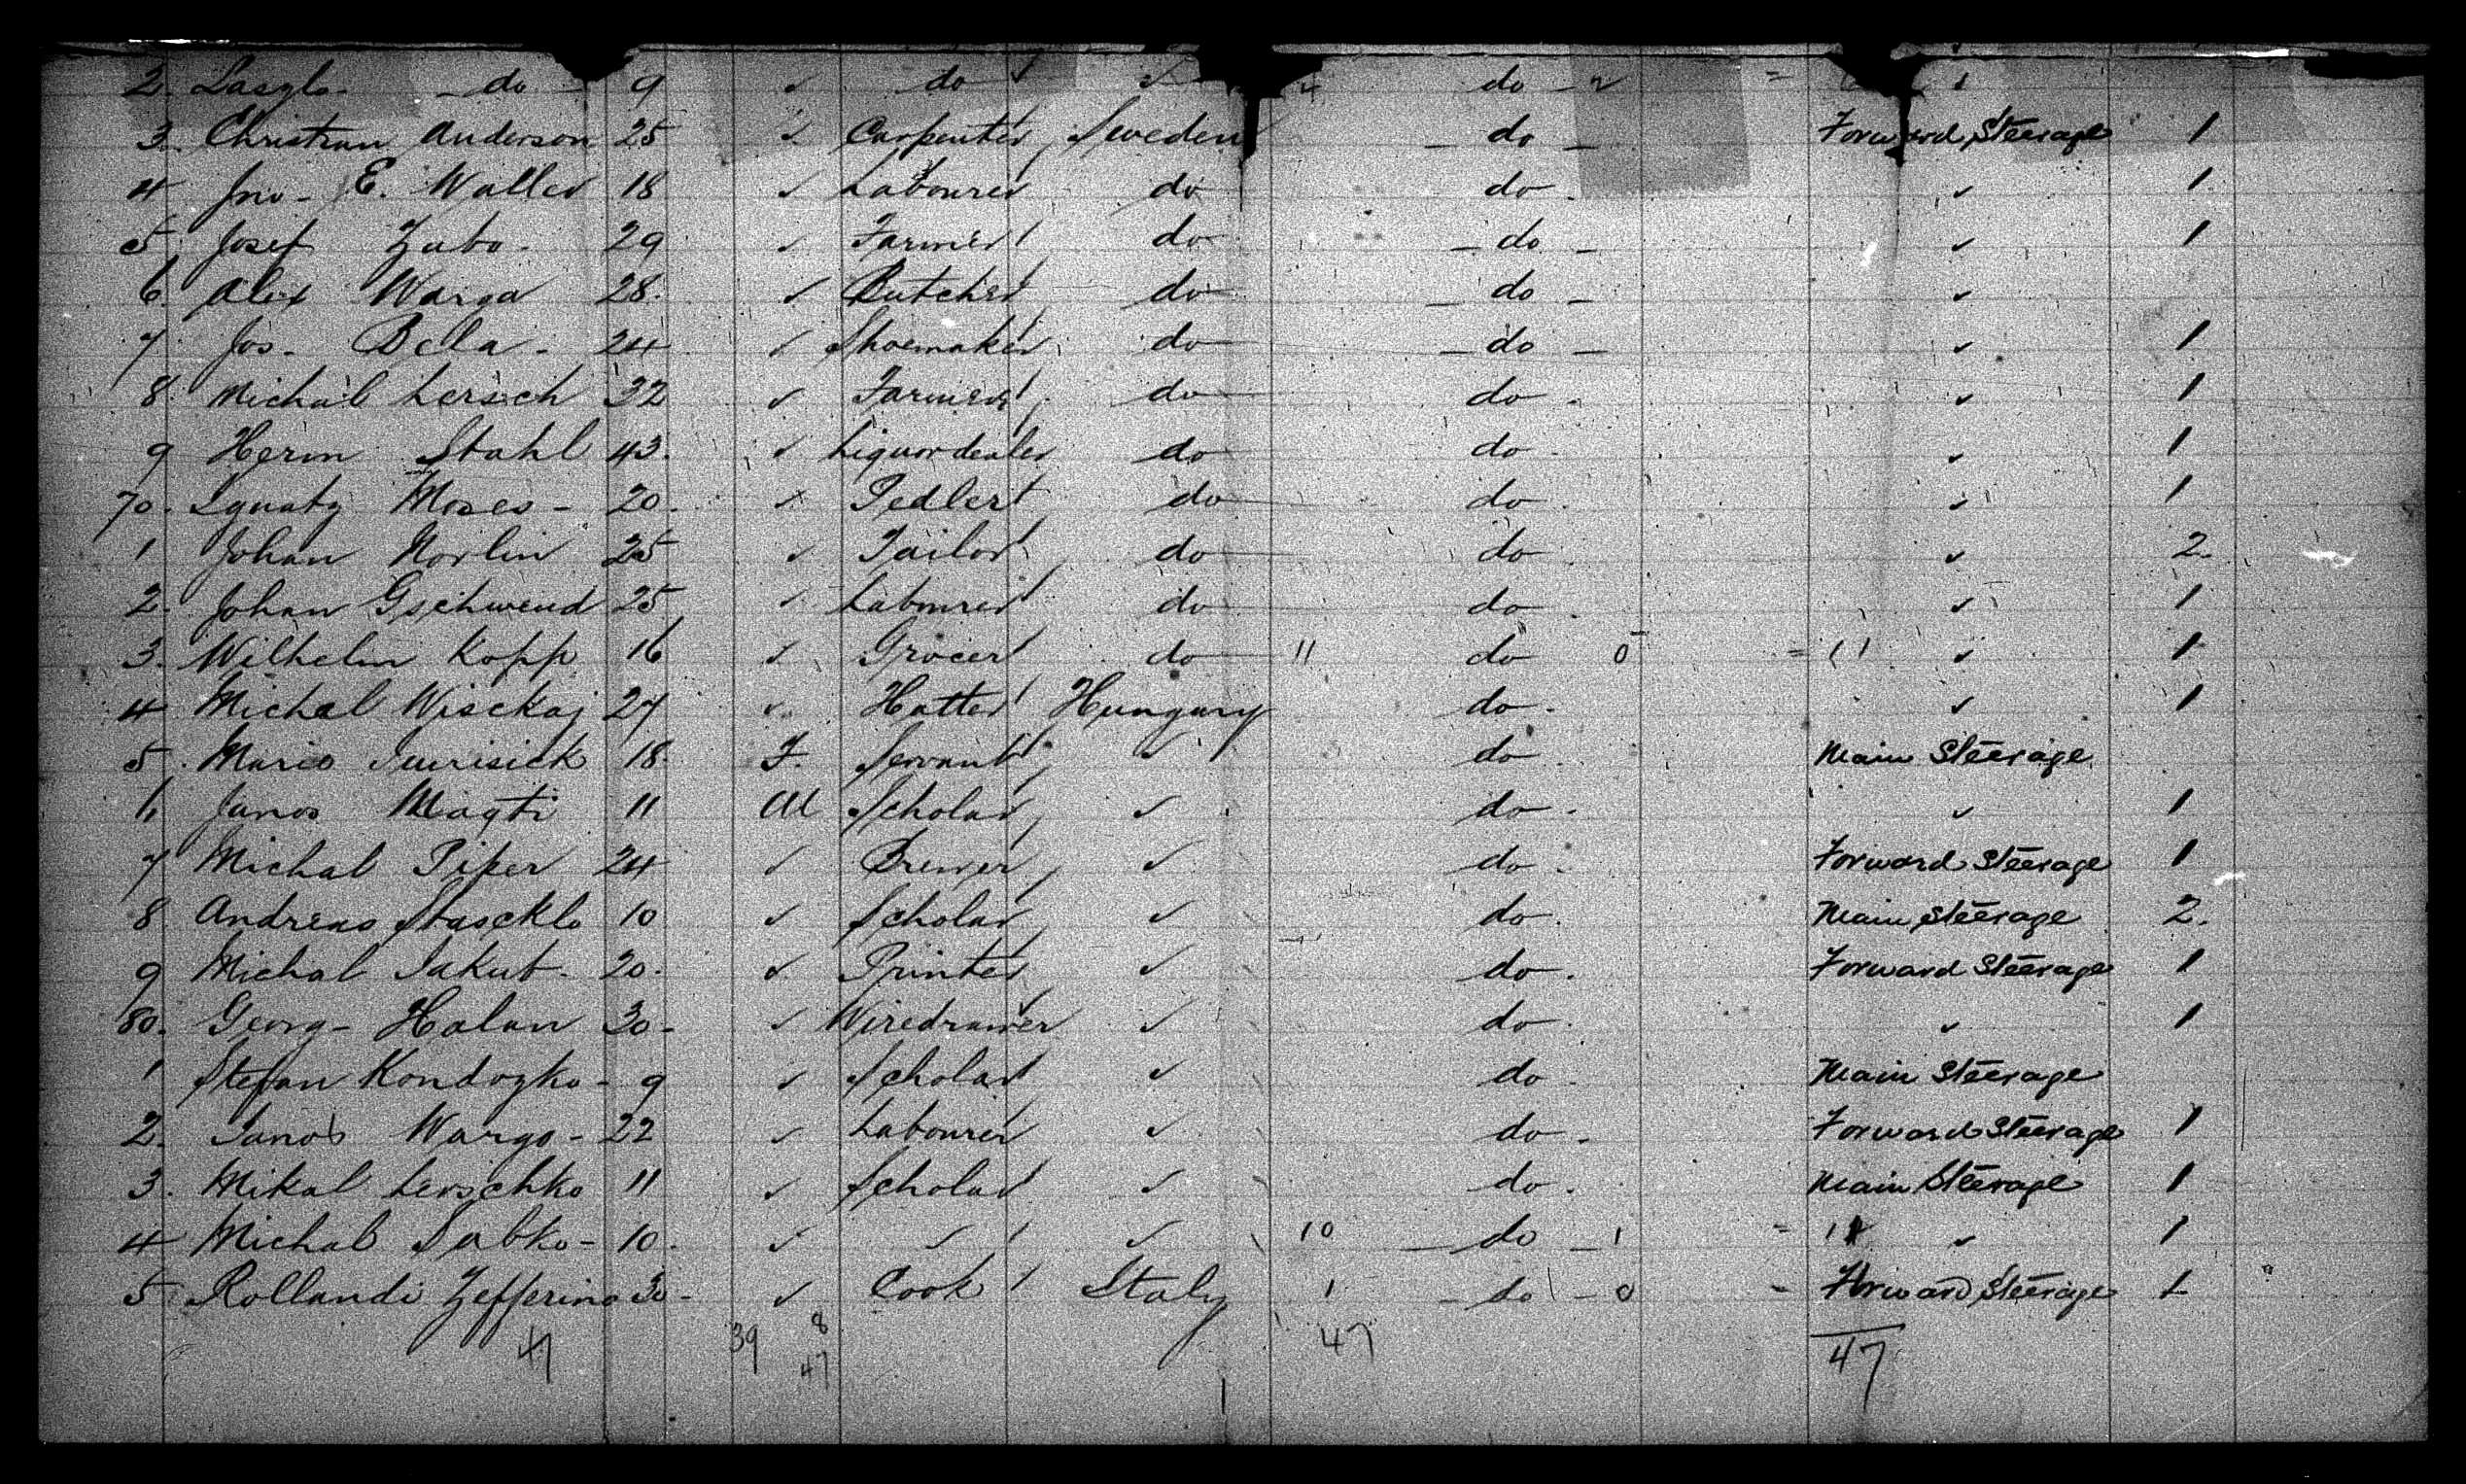 2. Laszlo - do - 9 ✓ do ✓ 4 do - 2 = ✓
3. Christian Anderson 25 ✓ Carpenter Sweden - do - Forward Steerage 1
4 Jno - E. Waller 18 ✓ Labourer do do - ✓ 1
5 Josef Zabo - 29 ✓ Farmer do - do - ✓ 1
6 Alex Warga 28. ✓ Butcher do - do - ✓
7 Jos. Bela - 24 ✓ Shoemaker do - do - ✓ 1
8 Michal Lersch 32 ✓ Farmer do do - ✓ 1
9 Herm Stahl 43. ✓ Liquordealer do do - ✓ 1
70. Ignatz Moses - 20. ✓ Pedler do do - ✓ 1
1 Johan Norlin 25 ✓ Tailor do do ✓ 2.
2. Johan Gschwend 25 ✓ Labourer do do - ✓ 1
3. Wilhelm Kopp 16 ✓ Grocer do 11 do 0 = 11 ✓ 1
4 Michal Wisckaj 27 ✓ Hatter Hungary do - ✓ 1
5. 18. F. Servant ✓ do - Main Steerage
6 Janos Magti 11 M Scholar ✓ do - ✓ 1
7 Michal Piper 24 ✓ Brewer ✓ do - Forward Steerage 1
8 Andreas Stascklo 10 ✓ Scholar ✓ do - Main Steerage 2.
9 Michal Jakub - 20. ✓ Printer ✓ do - Forward Steerage 1
80. Georg - Halan 30 - ✓ Wiredrawer ✓ do - ✓ 1
1 Stefan Kondozko - 9 ✓ Scholar ✓ do - Main Steerage
2. Janos Wargo - 22 ✓ Labourer ✓ do - Forward Steerage 1
3. Mikal Lerschko 11 ✓ Scholar ✓ do - Main Steerage 1
4 Michal Sabko - 10. ✓ ✓ ✓ 10 - do - 1 = 11 ✓ 1
5 Rollandi Zefferino 30 - ✓ Cook Italy 1 - do - 0 = Forward Steerage 1
47 39 8 47 47 47